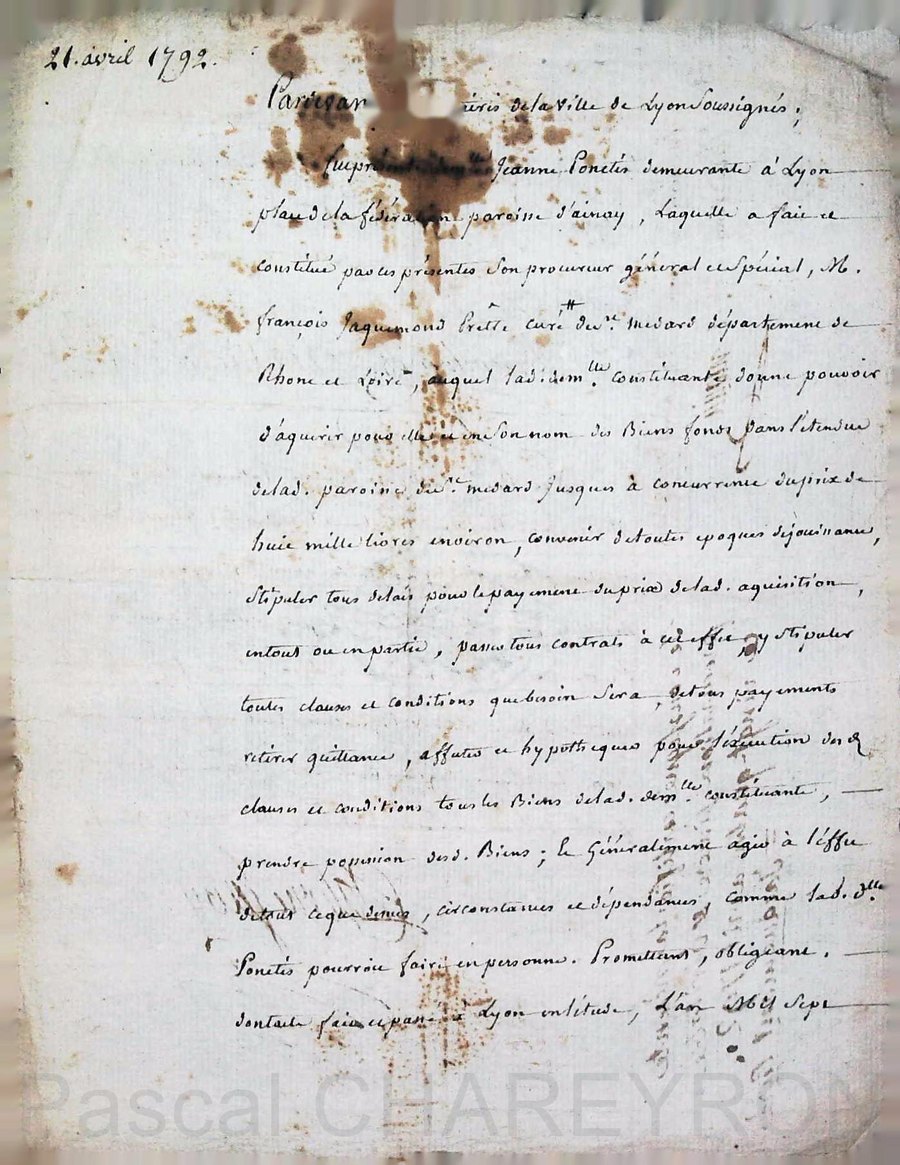 21. avril 1792.
Pardevan de la Ville de Lyon Soussignés ;
fut présente dem.lle Jeanne Ponetés demeurante à Lyon
place de la fédération paroisse d'ainay, Laquelle a fait et
constitué par ces présentes Son procureur général et Spécial, M.
françois Jaquemond Prêtre curé # de St. medard département de
Rhone et Loire, auquel lad. dem.lle constituante donne pouvoir
d'aquerir pour elle et en Son nom des Biens fonds dans l'étendue
de lad. paroisse de St. medard Jusques à concurrence du prix de
huit mille livres environ, convenir de toutes epoques de jouissance,
Stipuler tous delais pour le payement du prix de lad. aquisition,
en tout ou en partie, passer tous contrats à cet effet, y Stipuler
toutes clauses et conditions que besoin Sera, de tous payements
retirer quittance, affecter et hypothequer pour l'éxécution desd.
clauses et conditions tous les Biens de lad. dem.lle constituante,
prendre possession desd. Biens ; Et Généralement agir à l'effet
de tout ce que dessus, circonstances et dépendances, comme lad. d.lle
Ponetés pourroit faire en personne. Promettant, obligeant.
dont acte fait et passé à Lyon en l'étude, L'an Mil Sept
Pascal CHAREYRON